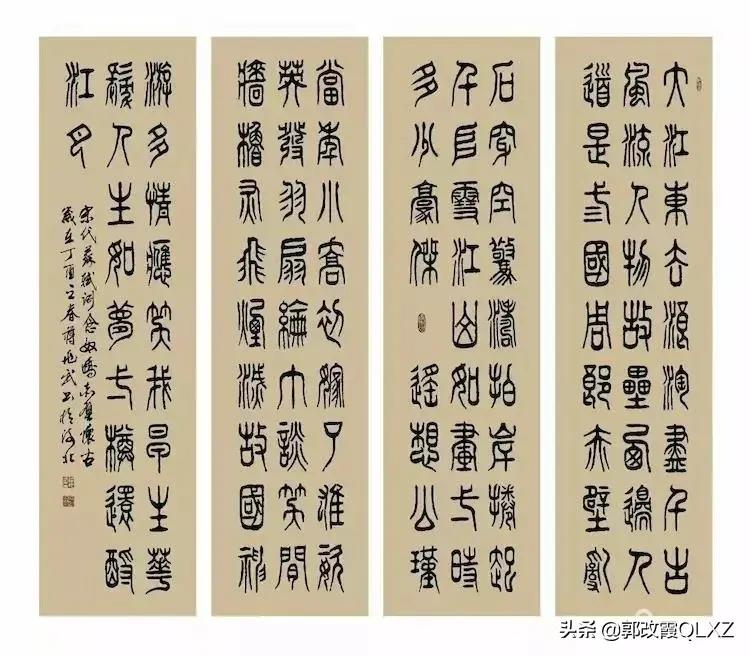 大江東去浪淘盡千古
風流人物故壘西邊人
道是三國周郎赤壁亂
石穿空驚濤拍岸捲起
千堆雪江山如畫一時
多少豪傑遙想公瑾
當年小喬初嫁了雄姿
英發羽扇綸巾談笑間
檣櫓灰飛煙滅故國神
游多情應笑我早生華
髮人生如夢一樽還酹
江月
宋代蘇軾詞念奴嬌赤壁懷古
歲在丁酉之春書於河北
头条 @郭改霞QLXZ